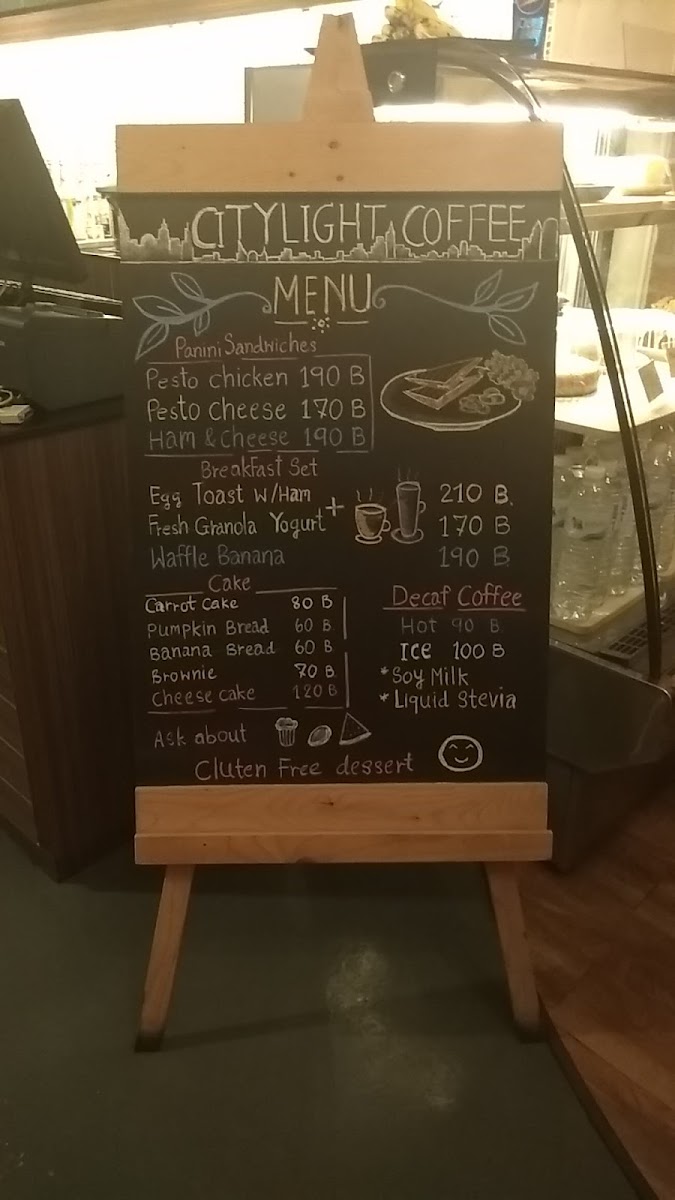 CITYLIGHT COFFEE
MENU
Panini Sandwiches
Pesto chicken 190 B
Pesto cheese 170 B
Ham & cheese 190 B
Breakfast Set
Egg Toast w/Ham 210 B.
Fresh Granola Yogurt + 170 B
Waffle Banana 190 B
Cake
Carrot cake 80 B
Pumpkin Bread 60 B.
Banana Bread 60 B.
Brownie 70 B.
Cheese cake 120 B
Decaf Coffee
Hot 90 B
ICE 100 B
*Soy Milk
*Liquid Stevia
Ask about
Cluten Free dessert